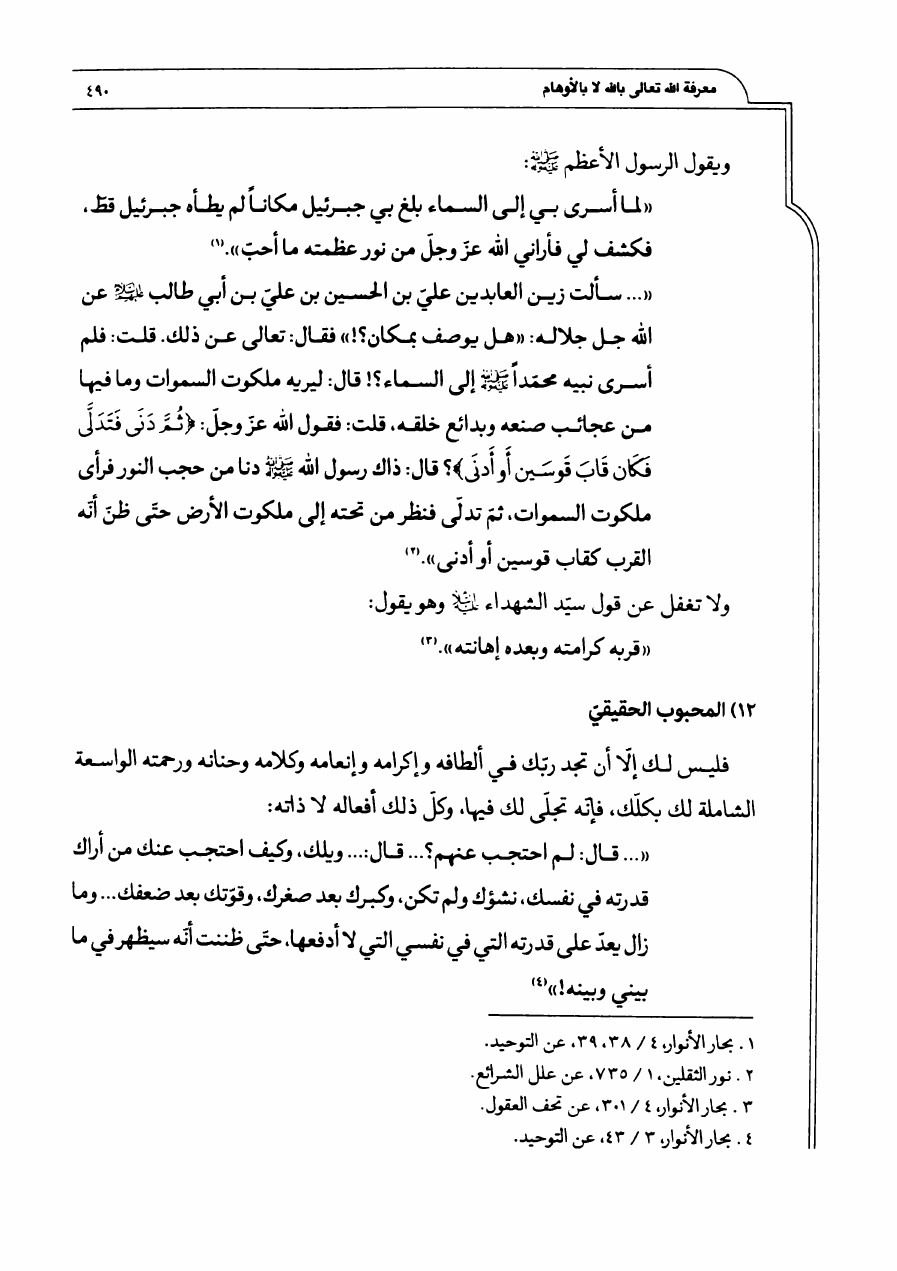 معرفة الله تعالى بالله لا بالأوهام ٤٩٠
ويقول الرسول الأعظم ﷺ:
«لمـا أسـرى بـي إلـى السـماء بلغ بي جبـرئيل مكانـاً لم يطـأه جبـرئيل قطّ،
فكشف لي فأراني الله عزّ وجلّ من نور عظمته ما أحبّ».(١)
«... سـألت زيـن العابدين عليّ بن الحسـين بن عليّ بـن أبي طالب عليهم السلام عن
الله جـل جلالـه: «هـل يوصف بمكان؟!» فقـال: تعالى عـن ذلك. قلـت: فلم
أسـرى نبيه محمّداً ﷺ إلى السـماء؟! قال: ليريه ملكوت السموات وما فيها
مـن عجائـب صنعه وبدائع خلقـه، قلت: فقـول الله عزّ وجلّ: ﴿ثُمَّ دَنَى فَتَدَلَّى
فَكَان قَابَ قَوسَين أَو أَدنَى﴾؟ قال: ذاك رسول الله ﷺ دنا من حجب النور فرأى
ملكوت السـموات، ثمّ تدلّى فنظر من تحته إلى ملكوت الأرض حتّى ظنّ أنّه
القرب كقاب قوسين أو أدنى».(٢)
ولا تغفل عن قول سيّد الشهداء عليه السلام وهو يقول:
«قربه كرامته وبعده إهانته».(٣)
١٢) المحبوب الحقيقيّ
فليـس لـك إلّا أن تجد ربّك فـي ألطافه وإكرامه وإنعامه وكلامه وحنانه ورحمته الواسـعة
الشاملة لك بكلّك، فإنّه تجلّى لك فيها، وكلّ ذلك أفعاله لا ذاته:
«... قـال: لـم احتجـب عنهم؟... قـال:... ويلك، وكيف احتجـب عنك من أراك
قدرته في نفسك، نشؤك ولم تكن، وكبرك بعد صغرك، وقوّتك بعد ضعفك... وما
زال يعدّ على قدرته التي في نفسي التي لا أدفعها، حتّى ظننت أنّه سيظهر في ما
بيني وبينه!»(٤)
١. بحار الأنوار، ٤ / ٣٨، ٣٩، عن التوحيد.
٢. نور الثقلين، ١ / ٧٣٥، عن علل الشرائع.
٣. بحار الأنوار، ٤ / ٣٠١، عن تحف العقول.
٤. بحار الأنوار، ٣ / ٤٣، عن التوحيد.